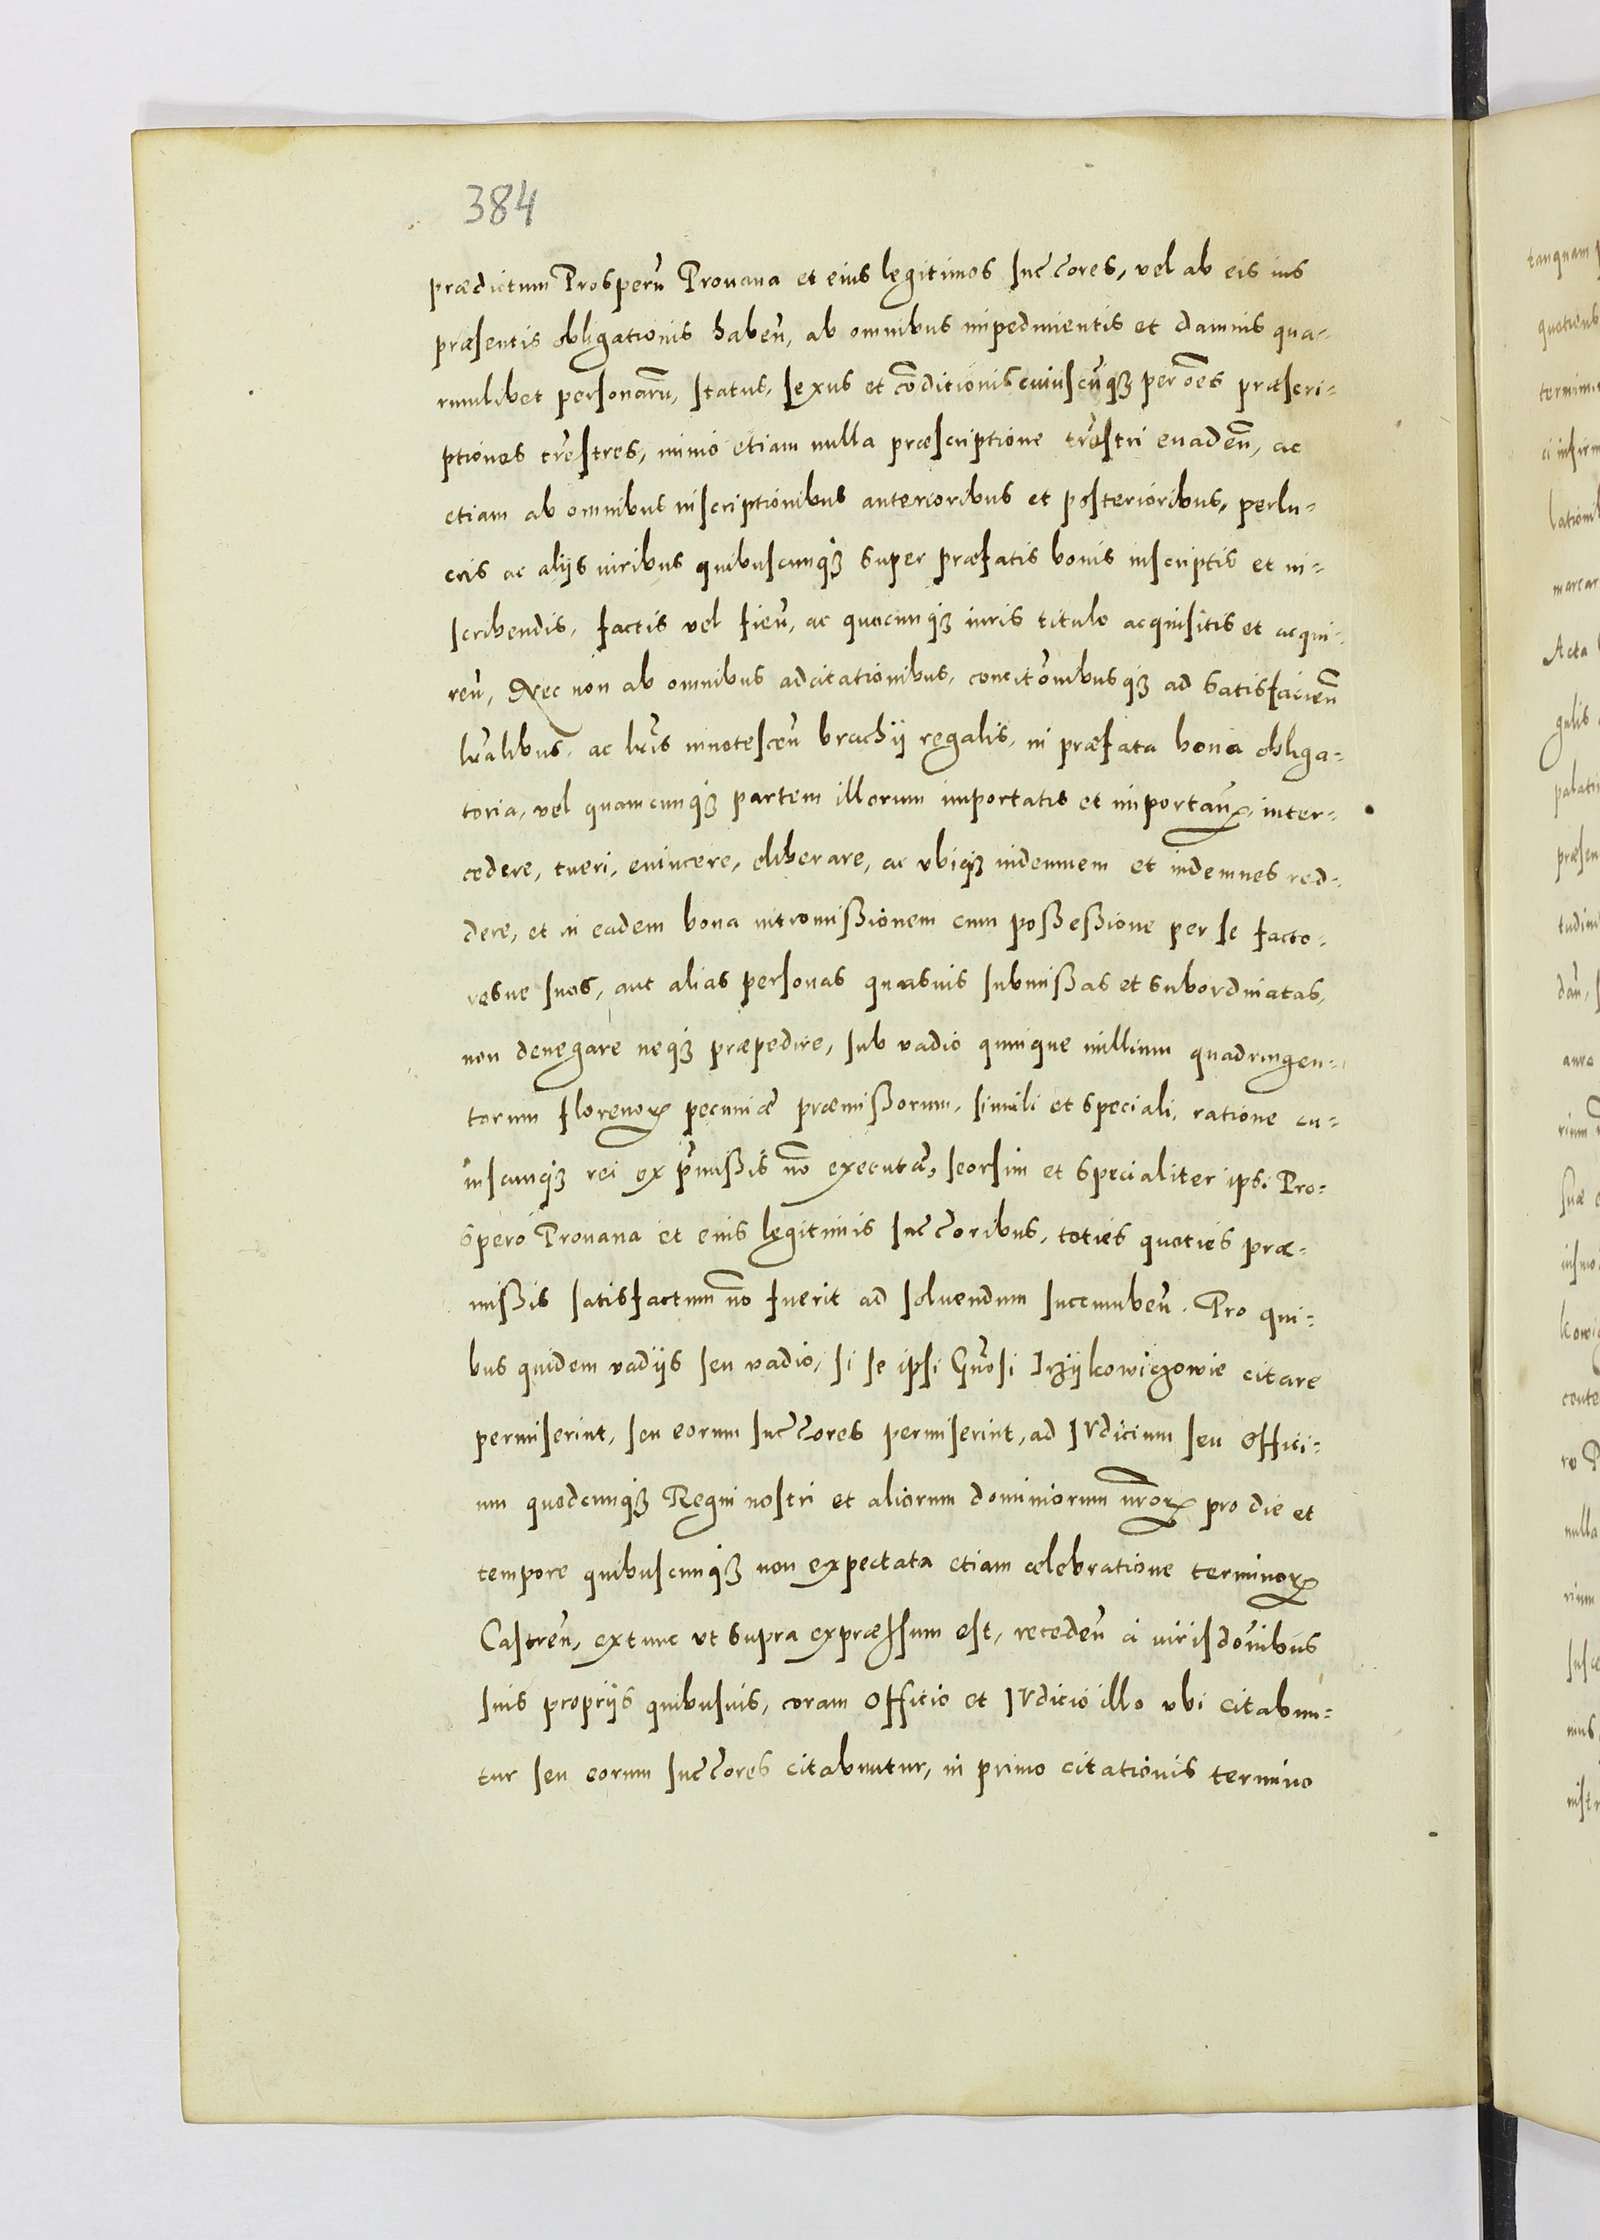 384
prædictum Prosperũ Prouana et eius legitimos succ̃ores, vel ab eis ius
præsentis obligationis habeñ, ab omnibus impedimentis et damnis qua-
rumlibet personarũ, status, sexus et cõditionis cuiuscũq₃ per oẽs præscri-
ptiones trẽstres, immo etiam nulla præscriptione trẽstri euadeñ, ac
etiam ab omnibus inscriptionibus anterioribus et posterioribus, perlu-
cris ac alijs iuribus quibuscunq₃ super præfatis bonis inscriptis et in-
scribendis, factis vel fieñ, ac quocunq₃ iuris titulo acquisitis et acqui-
reñ, Nec non ab omnibus adcitationibus, concitõnibusq₃ ad satisfacieñ
lr̃alibus, ac lr̃is innotesceñ brachij regalis, in præfata bona obliga-
toria, vel quamcunq₃ partem illorum importatis et importañ, inter-
cedere, tueri, euincere, eliberare, ac vbiq₃ indemnem et indemnes red-
dere, et in eadem bona intromißionem cum poßeßione per se facto-
resue suos, aut alias personas quasuis submißas et subordinatas,
non denegare neq₃ præpedire, sub vadio quinque millium quadringen-
torum florenoꝝ pecuniæ præmißorum, simili et speciali, ratione cu-
iuscunq₃ rei ex p̃mißis nõ executæ, seorsim et specialiter ipsi Pro-
spero Prouana et eius legitimis succ̃oribus, toties quoties præ-
mißis satisfactum nõ fuerit ad soluendum succumbeñ. Pro qui-
bus quidem vadijs seu vadio, si se ipsi Gñosi Irzÿkowiczowie citare
permiserint, seu eorum succ̃ores permiserint, ad Iudicium seu Offici-
um quodcunq₃ Regni nostri et aliorum dominiorum nr̃oꝝ pro die et
tempore quibuscunq₃ non expectata etiam celebratione terminoꝝ
Castreñ, extunc vt supra expræssum est, recedeñ a iurisdõnibus
suis proprijs quibusuis, coram Officio et Iudicio illo vbi citabun-
tur seu eorum succ̃ores citabuntur, in primo citationis termino